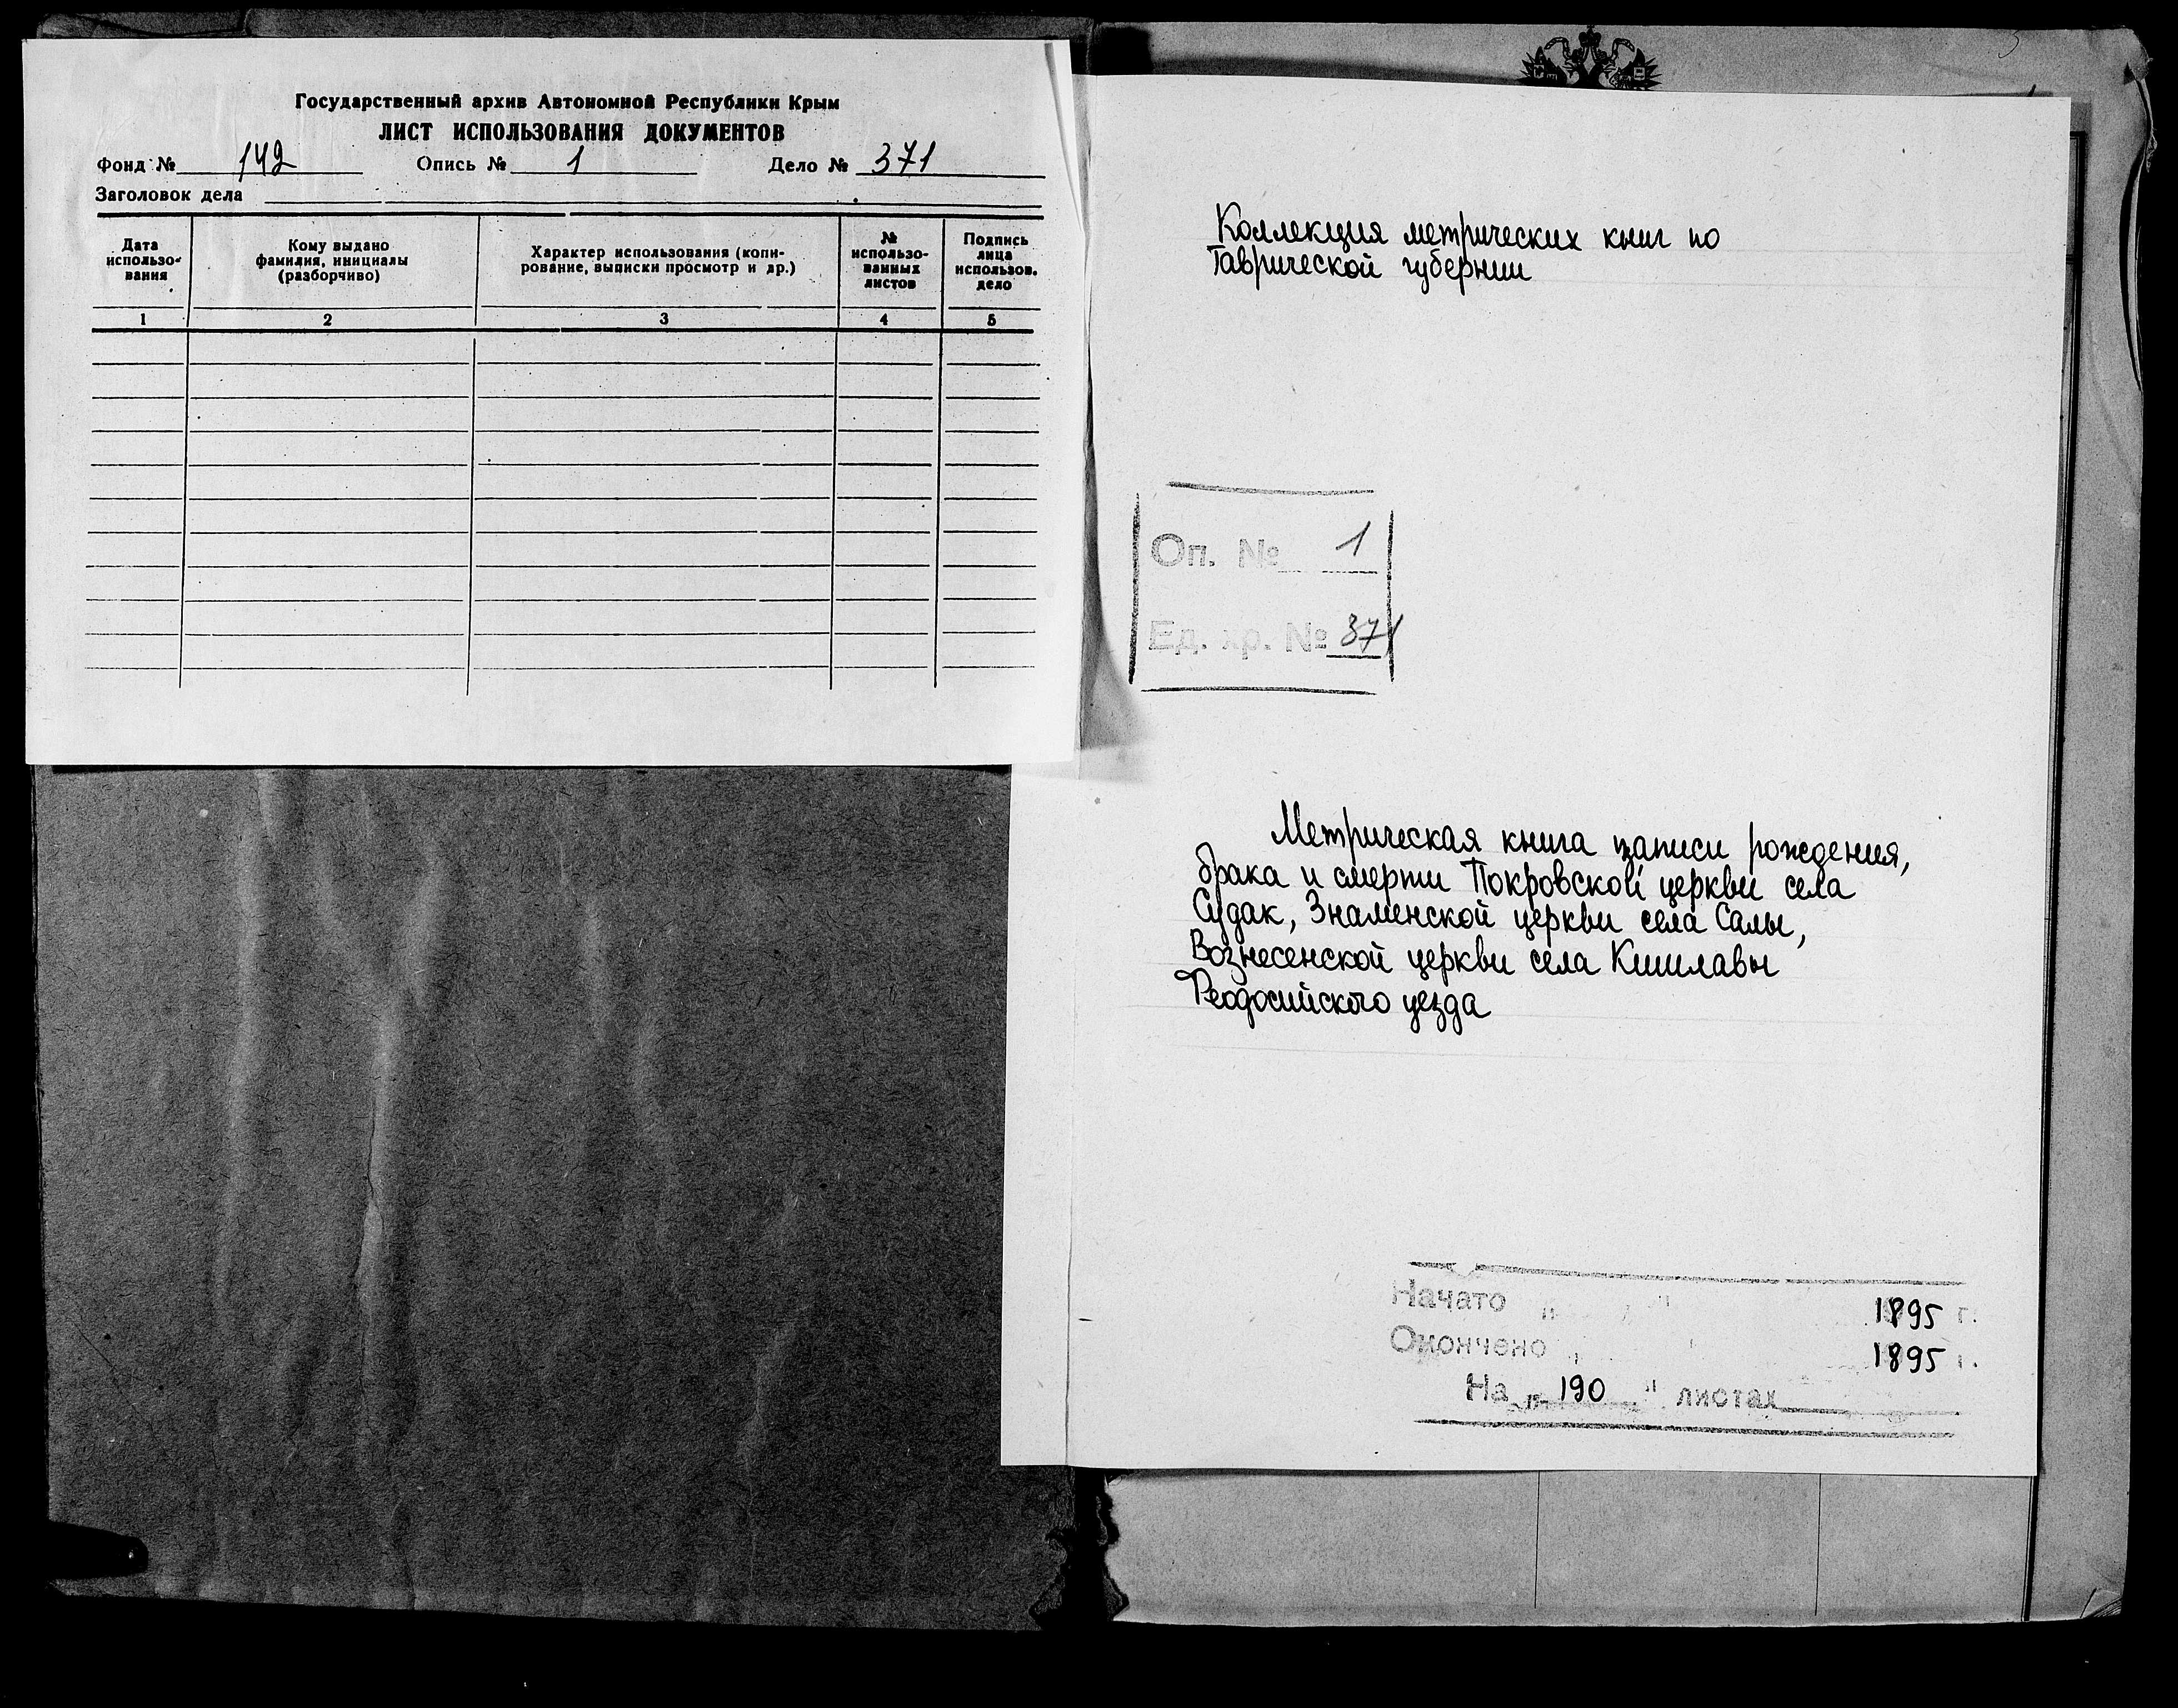 Государственный архив Автономной Республики Крым
ЛИСТ ИСПОЛЬЗОВАНИЯ ДОКУМЕНТОВ
Фонд № 142 Опись № 1 Дело № 371
Заголовок дела
Дата использо-вания
Кому выдано фамилия, инициалы (разборчиво)
Характер использования (копи-рование, выписки просмотр и др.)
№ использо-ванных листов
Подпись лица использов. дело
1 2 3 4 5
Коллекция метрических книг по
Таврической губернии
Оп. № 1
Ед. хр. № 371
Метрическая книга записи рождения,
брака и смерти Покровской церкви села
Судак, Знаменской церкви села Салы,
Вознесенской церкви села Кишлавы
Феодосийского уезда
Начато " " 1895 г.
Окончено " " 1895 г.
На " 190 " листах